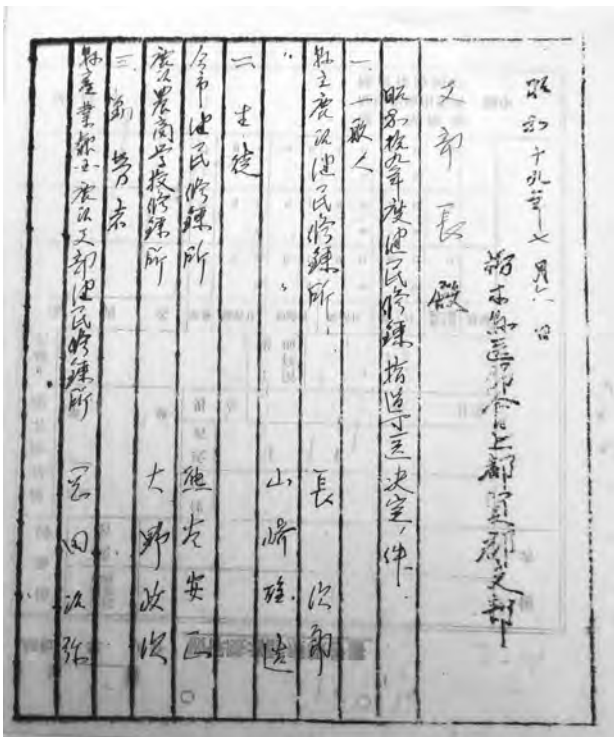 昭和十九年七月六日
栃木県医師会上都賀郡支部
支部長殿
昭和拾九年度健民修錬指導医決定ノ件
一、一般人
県立鹿沼健民修錬所 長 次郎
〃 〃 山崎
二 生徒
今市健民修錬所 熊谷安正
鹿沼農商学校修錬所 大野政次
三、勤労者
県産業報玉鹿沼支部健民修錬所 田次弥